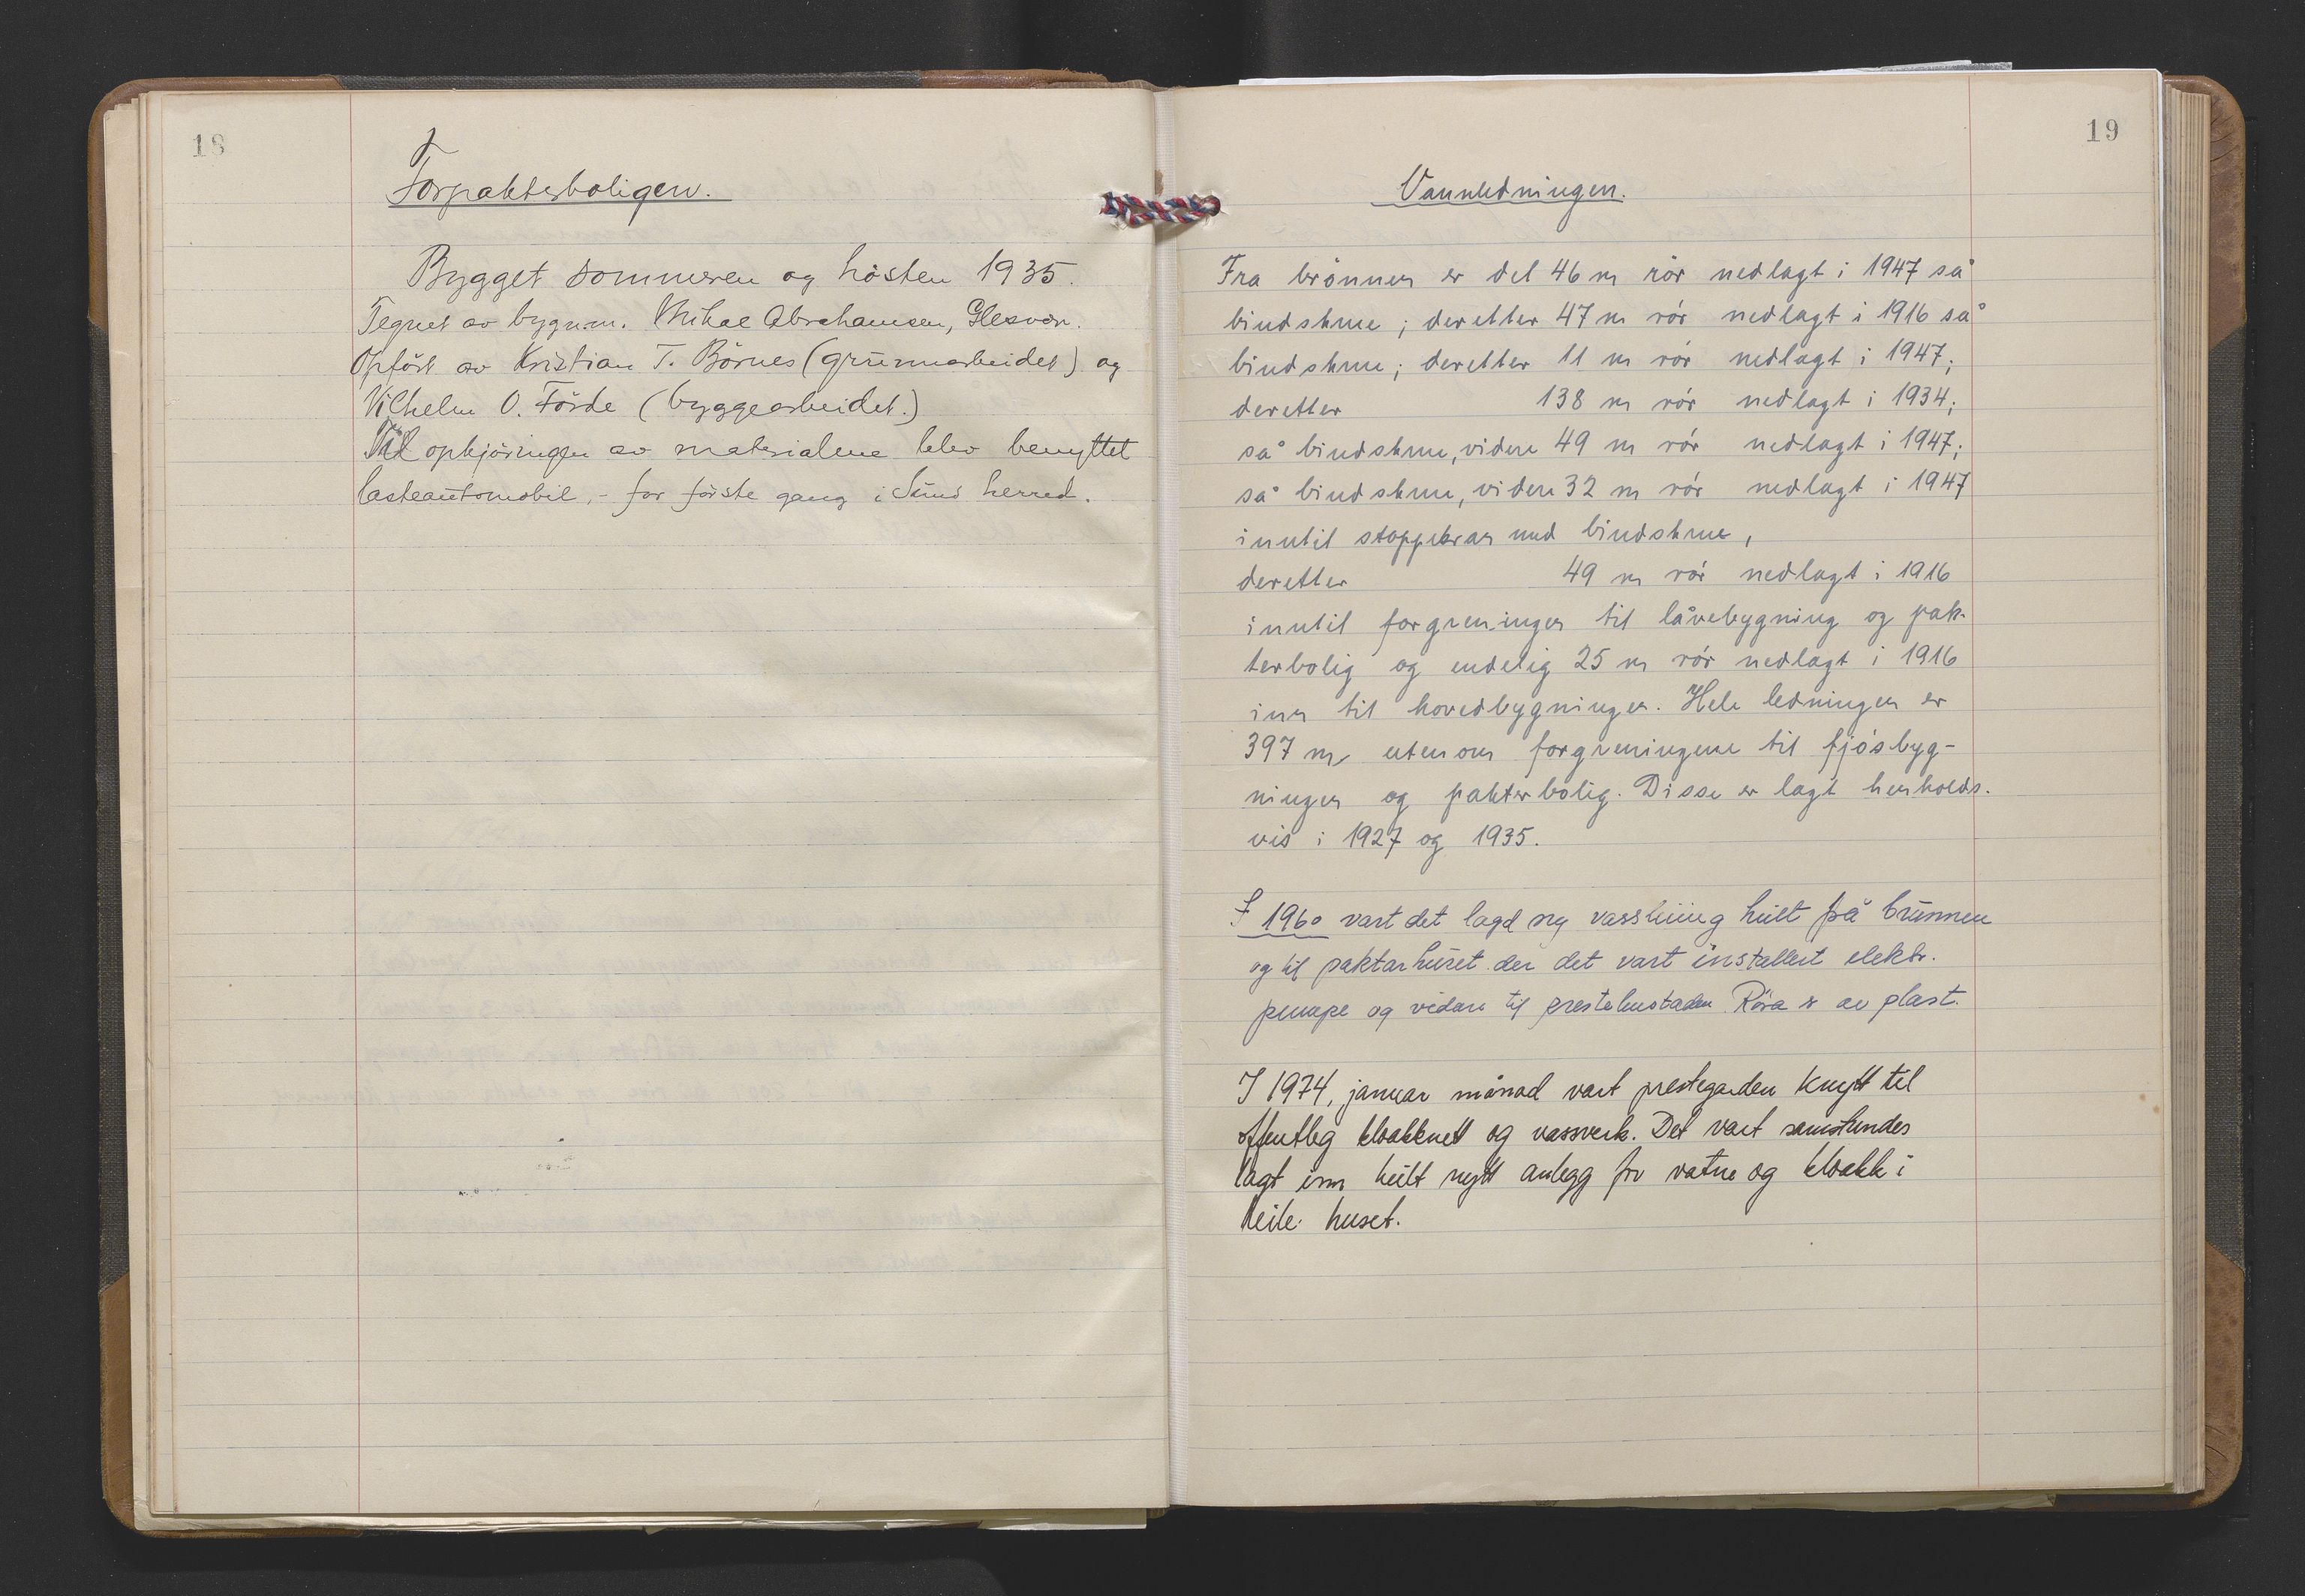 18
Forpakterboligen.
Bygget sommeren og hösten 1935.
Tegnet av bygnm. Mikal Abrahamsen, Glesvær.
Opfört av Kristian T. Börnes (grunnarbeidet) og
Vilhelm O. Förde (byggearbeidet.)
Til opkjöringen av materialene blev benyttet
lasteautomobil, - for förste gang i Sund herred.
19
Vannledningen.
Fra brönnen er det 46 m rör nedlagt i 1947 så
bindskrue; deretter 47 m rör nedlagt i 1916 så
bindskrue; deretter 11 m rör nedlagt i 1947;
deretter 138 m rör nedlagt i 1934;
så bindskrue, videre 49 m rör nedlagt i 1947;
så bindskrue, videre 32 m rör nedlagt i 1947
inntil stoppekran med bindskrue,
deretter 49 m rör nedlagt i 1916
inntil forgreningen til låvebygning og pak-
terbolig og endelig 25 m rör nedlagt i 1916
inn til hovedbygningen. Hele ledningen er
397 m utenom forgreningene til fjösbyg-
ningen og pakterbolig. Disse er lagt henholds-
vis i 1927 og 1935.
I 1960 vart det lagd ny vassleiing heilt frå brunnen
og til paktarhuset der det vart installert elektr.
pumpe og vidare til prestebustaden. Röra er av plast.
I 1974, januar månad vart prestegarden knytt til
offentleg kloakknett og vassverk. Det vart samstundes
lagt inn heilt nytt anlegg for vatn og kloakk i
heile huset.